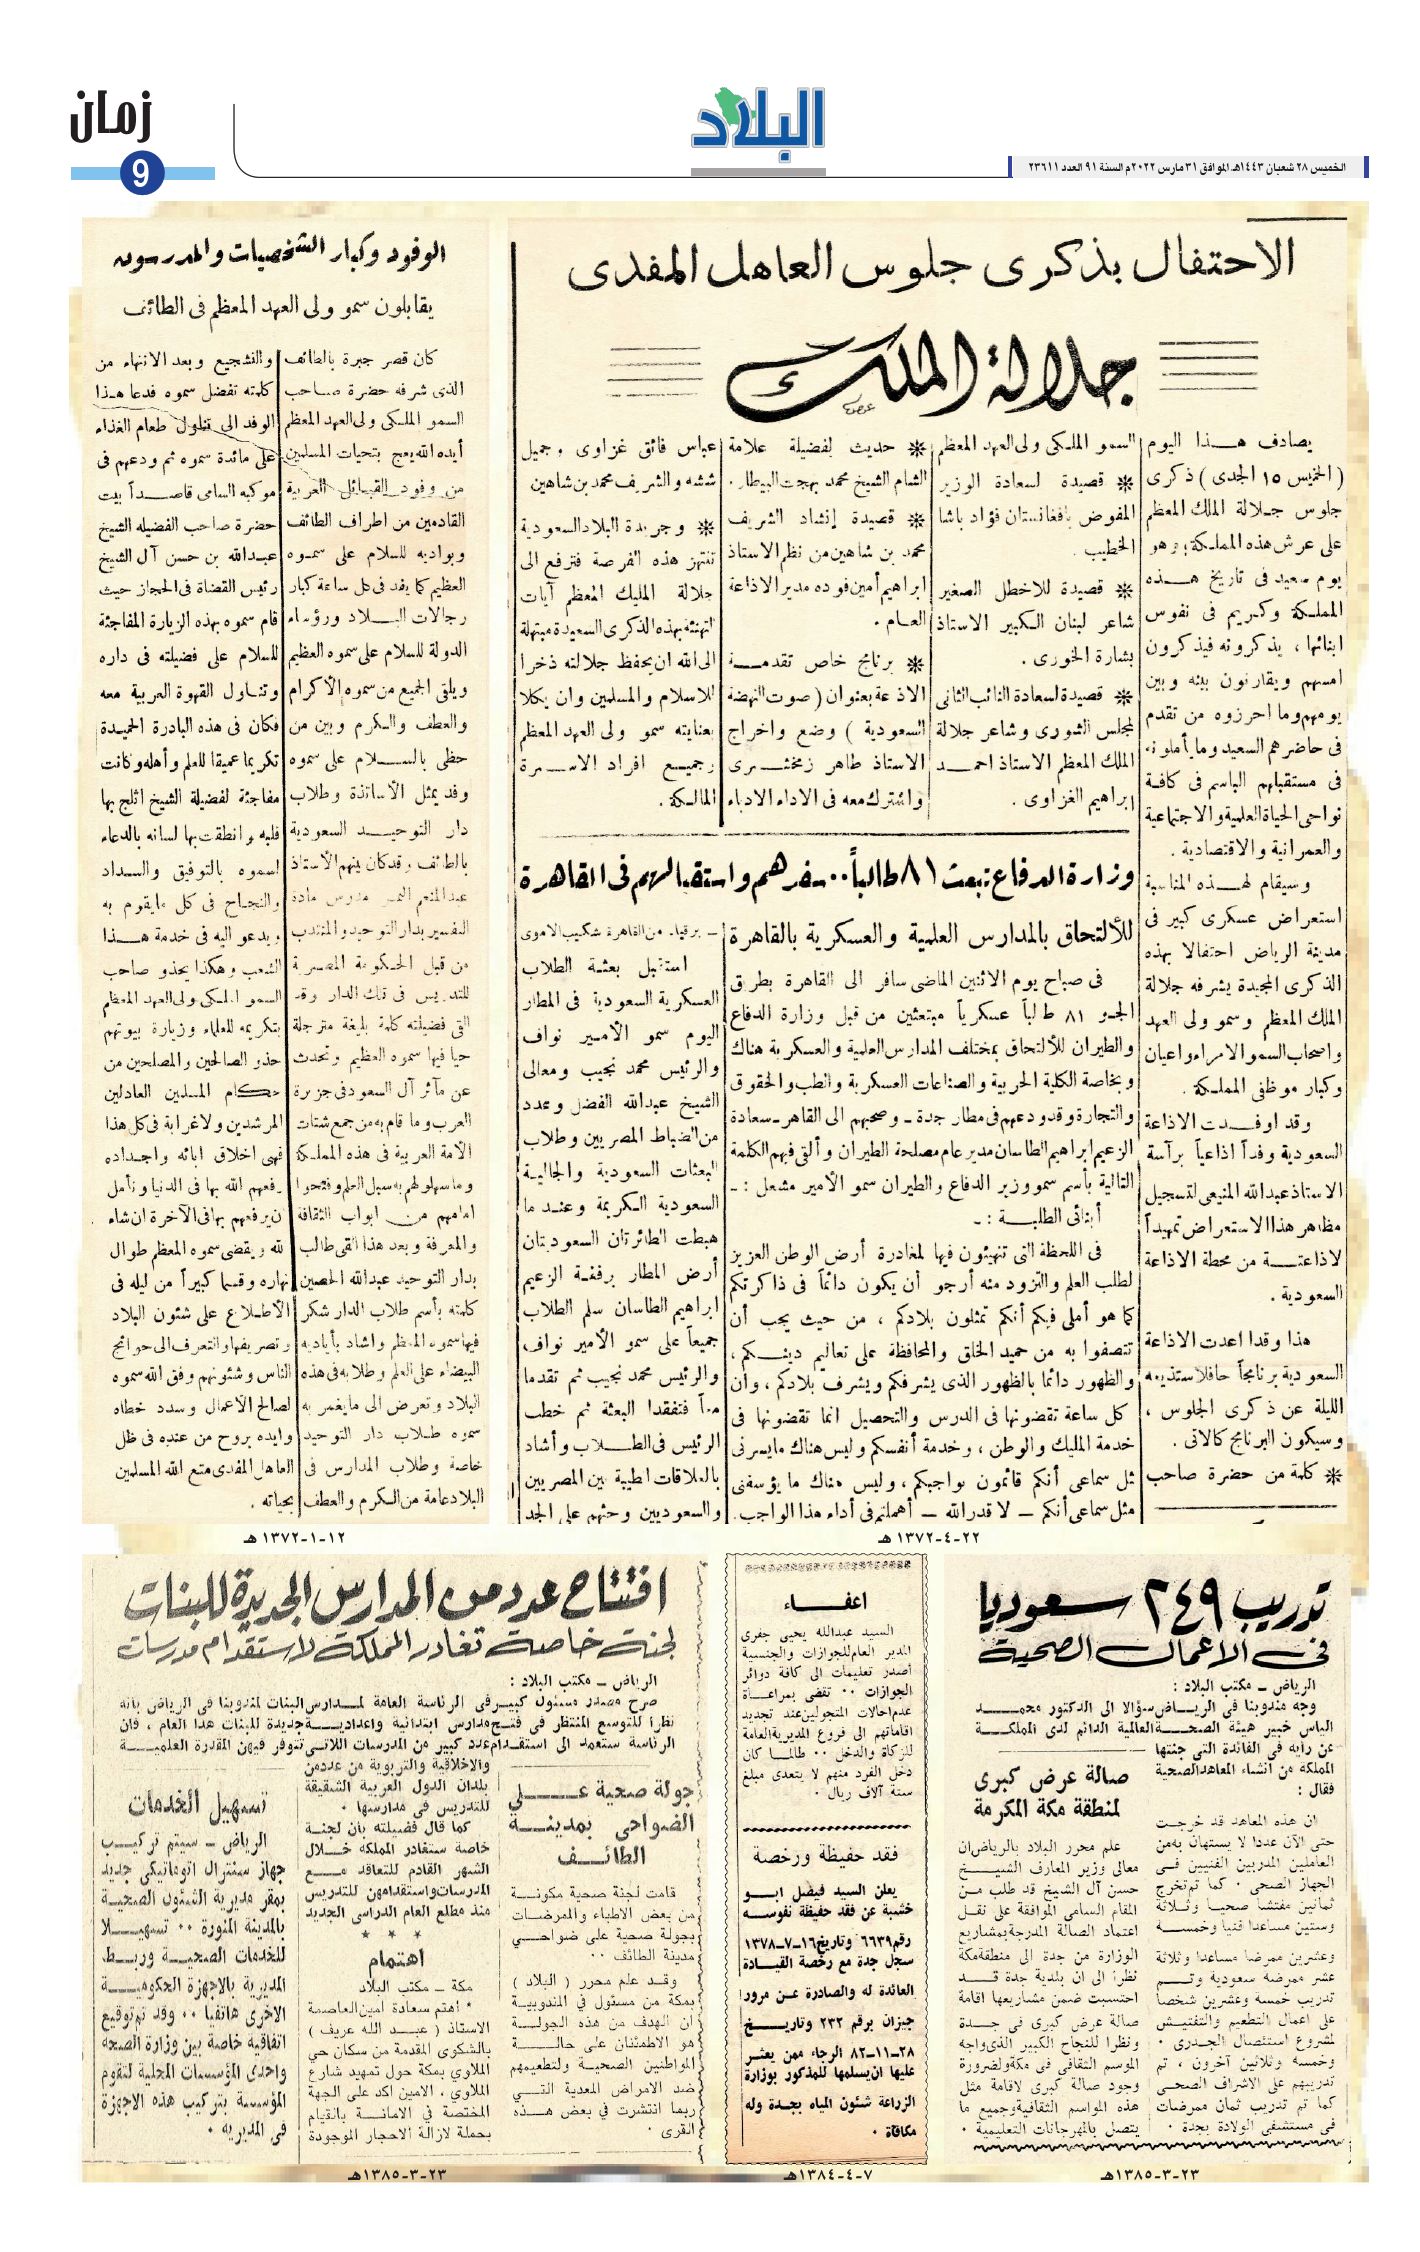 زمان
9
البلاد
الخميس ٢٨ شعبان ١٤٤٣هـ الموافق ٣١ مارس ٢٠٢٢م السنة ٩١ العدد ٢٣٦١١
الاحتفال بذكرى جلوس العاهل المفدى
جلالة الملك
يصادف هذا اليوم
( الخميس ١٥ الجدى ) ذكرى
جلوس جلالة الملك المعظم
على عرش هذه المملكة ؛ وهو
يوم سعيد فى تاريخ هذه
المملكة وكريم فى نفوس
ابنائها ، يذكرونه فيذكرون
امسهم ويقارنون بينه وبين
يومهم وما احرزوه من تقدم
فى حاضرهم السعيد وما يأملونه
فى مستقبلهم الباسم فى كافة
نواحى الحياة العلمية والاجتماعية
والعمرانية والاقتصادية .
وسيقام لهذه المناسبة
استعراض عسكرى كبير فى
مدينة الرياض احتفالا بهذه
الذكرى المجيدة يشرفه جلالة
الملك المعظم وسمو ولى العهد
واصحاب السمو الامراء واعيان
وكبار موظفى المملكة .
وقد اوفدت الاذاعة
السعودية وفداً اذاعياً برآسة
الاستاذ عبدالله المنيعى لتسجيل
مظاهر هذا الاستعراض تمهيداً
لاذاعتة من محطة الاذاعة
السعودية .
هذا وقد اعدت الاذاعة
السعودية برنامجاً حافلا ستذيعه
الليلة عن ذكرى الجلوس ،
وسيكون البرنامج كالاتى .
* كلمة من حضرة صاحب
السمو الملكى ولى العهد المعظم
* قصيدة لسعادة الوزير
المفوض بافغانستان فؤاد باشا
الخطيب .
* قصيدة للاخطل الصغير
شاعر لبنان الكبير الاستاذ
بشارة الخورى .
* قصيدة لسعادة النائب الثانى
لمجلس الشورى وشاعر جلالة
الملك المعظم الاستاذ احمد
ابراهيم الغزاوى .
* حديث لفضيلة علامة
الشام الشيخ محمد بهجت البيطار .
* قصيدة إنشاد الشريف
محمد بن شاهين من نظم الاستاذ
ابراهيم أمين فوده مدير الاذاعة
العام .
* برنامج خاص تقدمه
الاذاعة بعنوان ( صوت النهضة
السعودية ) وضع واخراج
الاستاذ طاهر زمخشرى
واشترك معه فى الاداء الادباء
عباس فائق غزاوى وجميل
ششه والشريف محمد بن شاهين
* وجريدة البلاد السعودية
تنتهز هذه الفرصة فترفع الى
جلالة المليك المعظم آيات
التهنئة بهذه الذكرى السعيدة مبتهلة
الى الله ان يحفظ جلالته ذخرا
للاسلام والمسلمين وان يكلا
بعنايته سمو ولى العهد المعظم
وجميع افراد الاسرة
المالكة .
وزارة الدفاع تبعث ٨١ طالباً .. سفرهم واستقبالهم فى القاهرة
للألتحاق بالمدارس العلمية والعسكرية بالقاهرة
فى صباح يوم الاثنين الماضى سافر الى القاهرة بطريق
الجو ٨١ طالباً عسكرياً مبتعثين من قبل وزارة الدفاع
والطيران للألتحاق بمختلف المدارس العلمية والعسكرية هناك
وبخاصة الكلية الحربية والصناعات العسكرية والطب والحقوق
والتجارة وقد ودعهم فى مطار جدة - وصحبهم الى القاهرة - سعادة
الزعيم ابراهيم الطاسان مدير عام مصلحة الطيران وألقى فيهم الكلمة
التالية بأسم سمو وزير الدفاع والطيران سمو الأمير مشعل : -
أبنائى الطلبة : -
فى اللحظة التى تتهيئون فيها لمغادرة أرض الوطن العزيز
لطلب العلم والتزود منه أرجو أن يكون دائماً فى ذاكرتكم
كما هو أملى فيكم أنكم تمثلون بلادكم ، من حيث يجب أن
تتصفوا به من حميد الخلق والمحافظة على تعاليم دينكم ،
والظهور دائما بالظهور الذى يشرفكم ويشرف بلادكم ، وأن
كل ساعة تقضونها فى الدرس والتحصيل انما تقضونها فى
خدمة المليك والوطن ، وخدمة أنفسكم وليس هناك ما يسرنى
مثل سماعى أنكم قائمون بواجبكم ، وليس هناك ما يؤسفنى
مثل سماعى أنكم - لا قدر الله - أهملتم فى أداء هذا الواجب .
- برقياً . من القاهرة شكيب الاموى
استقبل بعثة الطلاب
العسكرية السعودية فى المطار
اليوم سمو الأمير نواف
والرئيس محمد نجيب ومعالى
الشيخ عبدالله الفضل وعدد
من الضباط المصريين وطلاب
البعثات السعودية والجالية
السعودية الكريمة وعند ما
هبطت الطائرتان السعوديتان
أرض المطار برفقة الزعيم
ابراهيم الطاسان سلم الطلاب
جميعاً على سمو الأمير نواف
والرئيس محمد نجيب ثم تقدما
معاً فتفقدا البعثة ثم خطب
الرئيس فى الطلاب وأشاد
بالعلاقات الطيبة بين المصريين
والسعوديين وحثهم على الجد
٢٢-٤-١٣٧٢هـ
الوفود وكبار الشخصيات والمدرسون
يقابلون سمو ولى العهد المعظم فى الطائف
كان قصر جبرة بالطائف
الذى شرفه حضرة صاحب
السمو الملكى ولى العهد المعظم
أيده الله يعج بتحيات المسلمين
من وفود القبائل العربية
القادمين من اطراف الطائف
وبواديه للسلام على سموه
العظيم كما يفد فى كل ساعة كبار
رجالات البلاد ورؤساء
الدولة للسلام على سموه العظيم
ويلقى الجميع من سموه الأكرام
والعطف والكرم وبين من
حظى بالسلام على سموه
وفد يمثل الأساتذة وطلاب
دار التوحيد السعودية
بالطائف وقد كان بينهم الأستاذ
عبدالمنعم النمر مدرس مادة
التفسير بدار التوحيد والمنتدب
من قبل الحكومة المصرية
للتدريس فى تلك الدار وقد
القى فضيلته كلمة بليغة مترجلة
حيا فيها سموه العظيم وتحدث
عن مآثر آل السعود فى جزيرة
العرب وما قام به من جمع شتات
الأمة العربية فى هذه المملكة
وما سهلوا لهم به سبل العلم وفتحوا
امامهم من ابواب الثقافة
والمعرفة وبعد هذا القى طالب
بدار التوحيد عبدالله الحصين
كلمته بأسم طلاب الدار شكر
فيها سموه المعظم واشاد بأياديه
البيضاء على العلم وطلابه فى هذه
البلاد وتعرض الى ما يغمر به
سموه طلاب دار التوحيد
خاصة وطلاب المدارس فى
البلاد عامة من الكرم والعطف
والتشجيع وبعد الانتهاء من
كلمته تفضل سموه فدعا هذا
الوفد الى تناول طعام الغذاء
على مائدة سموه ثم ودعهم فى
موكبه السامى قاصداً بيت
حضرة صاحب الفضيلة الشيخ
عبدالله بن حسن آل الشيخ
رئيس القضاة فى الحجاز حيث
قام سموه بهذه الزيارة المفاجئة
للسلام على فضيلته فى داره
وتناول القهوة العربية معه
فكان فى هذه البادرة الحميدة
تكريما عميقا للعلم وأهله وكانت
مفاجئة لفضيلة الشيخ اثلج بها
قلبه وانطقت بها لسانه بالدعاء
لسموه بالتوفيق والسداد
والنجاح فى كل ما يقوم به
ويدعو اليه فى خدمة هذا
الشعب وهكذا يحذو صاحب
السمو الملكى ولى العهد المعظم
بتكريمه للعلماء وزيارة بيوتهم
حذو الصالحين والمصلحين من
حكام المسلمين العادلين
المرشدين ولا غرابة فى كل هذا
فهى اخلاق ابائه واجداده
رفعهم الله بها فى الدنيا ونأمل
ان يرفعهم بها فى الآخرة ان شاء
الله ويقضى سموه المعظم طوال
نهاره وقسما كبيراً من ليله فى
الأطلاع على شئون البلاد
وتصريفها والتعرف الى حوائج
الناس وشئونهم وفق الله سموه
لصالح الأعمال وسدد خطاه
وايده بروح من عنده فى ظل
العاهل المفدى متع الله المسلمين
بحياته .
١٢-١-١٣٧٢هـ
تدريب ٢٤٩ سعوديا
فى الاعمال الصحية
الرياض - مكتب البلاد :
وجه مندوبنا فى الرياض سؤالا الى الدكتور محمد
الياس خبير هيئة الصحة العالمية الدائم لدى المملكة
عن رأيه فى الفائدة التى جنتها
المملكة من انشاء المعاهد الصحية
فقال :
ان هذه المعاهد قد خرجت
حتى الآن عددا لا يستهان به من
العاملين المدربين الفنيين فى
الجهاز الصحى . كما تم تخرج
ثمانين مفتشا صحيا وثلاثة
وستين مساعدا فنيا وخمسة
وعشرين ممرضا مساعدا وثلاثة
عشر ممرضة سعودية وتم
تدريب خمسة وعشرين شخصا
على اعمال التطعيم والتفتيش
لمشروع استئصال الجدرى .
وخمسة وثلاثين آخرون ، تم
تدريبهم على الاشراف الصحى
كما تم تدريب ثمان ممرضات
فى مستشفى الولادة بجدة .
صالة عرض كبرى
لمنطقة مكة المكرمة
علم محرر البلاد بالرياض ان
معالى وزير المعارف الشيخ
حسن آل الشيخ قد طلب من
المقام السامى الموافقة على نقل
اعتماد الصالة المدرجة بمشاريع
الوزارة من جدة الى منطقة مكة
نظرا الى ان بلدية جدة قد
احتسبت ضمن مشاريعها اقامة
صالة عرض كبرى فى جدة
ونظرا للنجاح الكبير الذى واجه
الموسم الثقافى فى مكة ولضرورة
وجود صالة كبرى لاقامة مثل
هذه المواسم الثقافية وجميع ما
يتصل بالمهرجانات التعليمية .
٢٣-٣-١٣٨٥هـ
اعفاء
السيد عبدالله يحيى جفرى
المدير العام للجوازات والجنسية
أصدر تعليمات الى كافة دوائر
الجوازات .. تقضى بمراعاة
عدم احالات المتجولين عند تجديد
اقاماتهم الى فروع المديرية العامة
للزكاة والدخل .. طالما كان
دخل الفرد منهم لا يتعدى مبلغ
ستة آلاف ريال .
فقد حفيظة ورخصة
يعلن السيد فيصل ابو
خشبة عن فقد حفيظة نفوسه
رقم ٦٦٣٩ وتاريخ ١٦-٧-١٣٧٨
سجل جدة مع رخصة القيادة
العائدة له والصادرة عن مرور
جيزان برقم ٢٣٢ وتاريخ
٢٨-١١-٨٢ الرجاء ممن يعثر
عليها ان يسلمها للمذكور بوزارة
الزراعة شئون المياه بجدة وله
مكافاة .
٧-٤-١٣٨٤هـ
افتتاح عدد من المدارس الجديدة للبنات
لجنة خاصة تغادر المملكة لاستقدام مدرسات
الرياض - مكتب البلاد :
صرح مصدر مسئول كبير فى الرئاسة العامة لمدارس البنات لمندوبنا فى الرياض بانه
نظرا للتوسع المنتظر فى فتح مدارس ابتدائية واعدادية جديدة للبنات هذا العام ، فان
الرئاسة ستعمد الى استقدام عدد كبير من المدرسات اللاتى تتوفر فيهن المقدرة العلمية
والاخلاقية والتربوية من عدد من
بلدان الدول العربية الشقيقة
للتدريس فى مدارسها .
كما قال فضيلته بأن لجنة
خاصة ستغادر المملكة خلال
الشهر القادم للتعاقد مع
المدرسات واستقدامهن للتدريس
منذ مطلع العام الدراسى الجديد
* * *
اهتمام
مكة - مكتب البلاد
* اهتم سعادة امين العاصمة
الاستاذ ( عبد الله عريف )
بالشكوى المقدمة من سكان حي
الملاوي بمكة حول تمهيد شارع
الملاوي ، الامين اكد على الجهة
المختصة في الامانة بالقيام
بحملة لازالة الاحجار الموجودة
جولة صحية على
الضواحى بمدينة
الطائف
قامت لجنة صحية مكونة
من بعض الاطباء والممرضات
بجولة صحية على ضواحي
مدينة الطائف ..
وقد علم محرر ( البلاد )
بمكة من مسئول في المندوبية
ان الهدف من هذه الجولة
هو الاطمئنان على حالة
المواطنين الصحية ولتطعيمهم
ضد الامراض المعدية التي
ربما انتشرت في بعض هذه
القرى .
تسهيل الخدمات
الرياض - سيتم تركيب
جهاز سنترال اتوماتيكى جديد
بمقر مديرية الشئون الصحية
بالمدينة المنورة .. تسهيلا
للخدمات الصحية وربط
المديرية بالاجهزة الحكومية
الاخرى هاتفيا .. وقد تم توقيع
اتفاقية خاصة بين وزارة الصحة
واحدى المؤسسات المحلية لتقوم
المؤسسة بتركيب هذه الاجهزة
فى المديريه .
٢٣-٣-١٣٨٥هـ